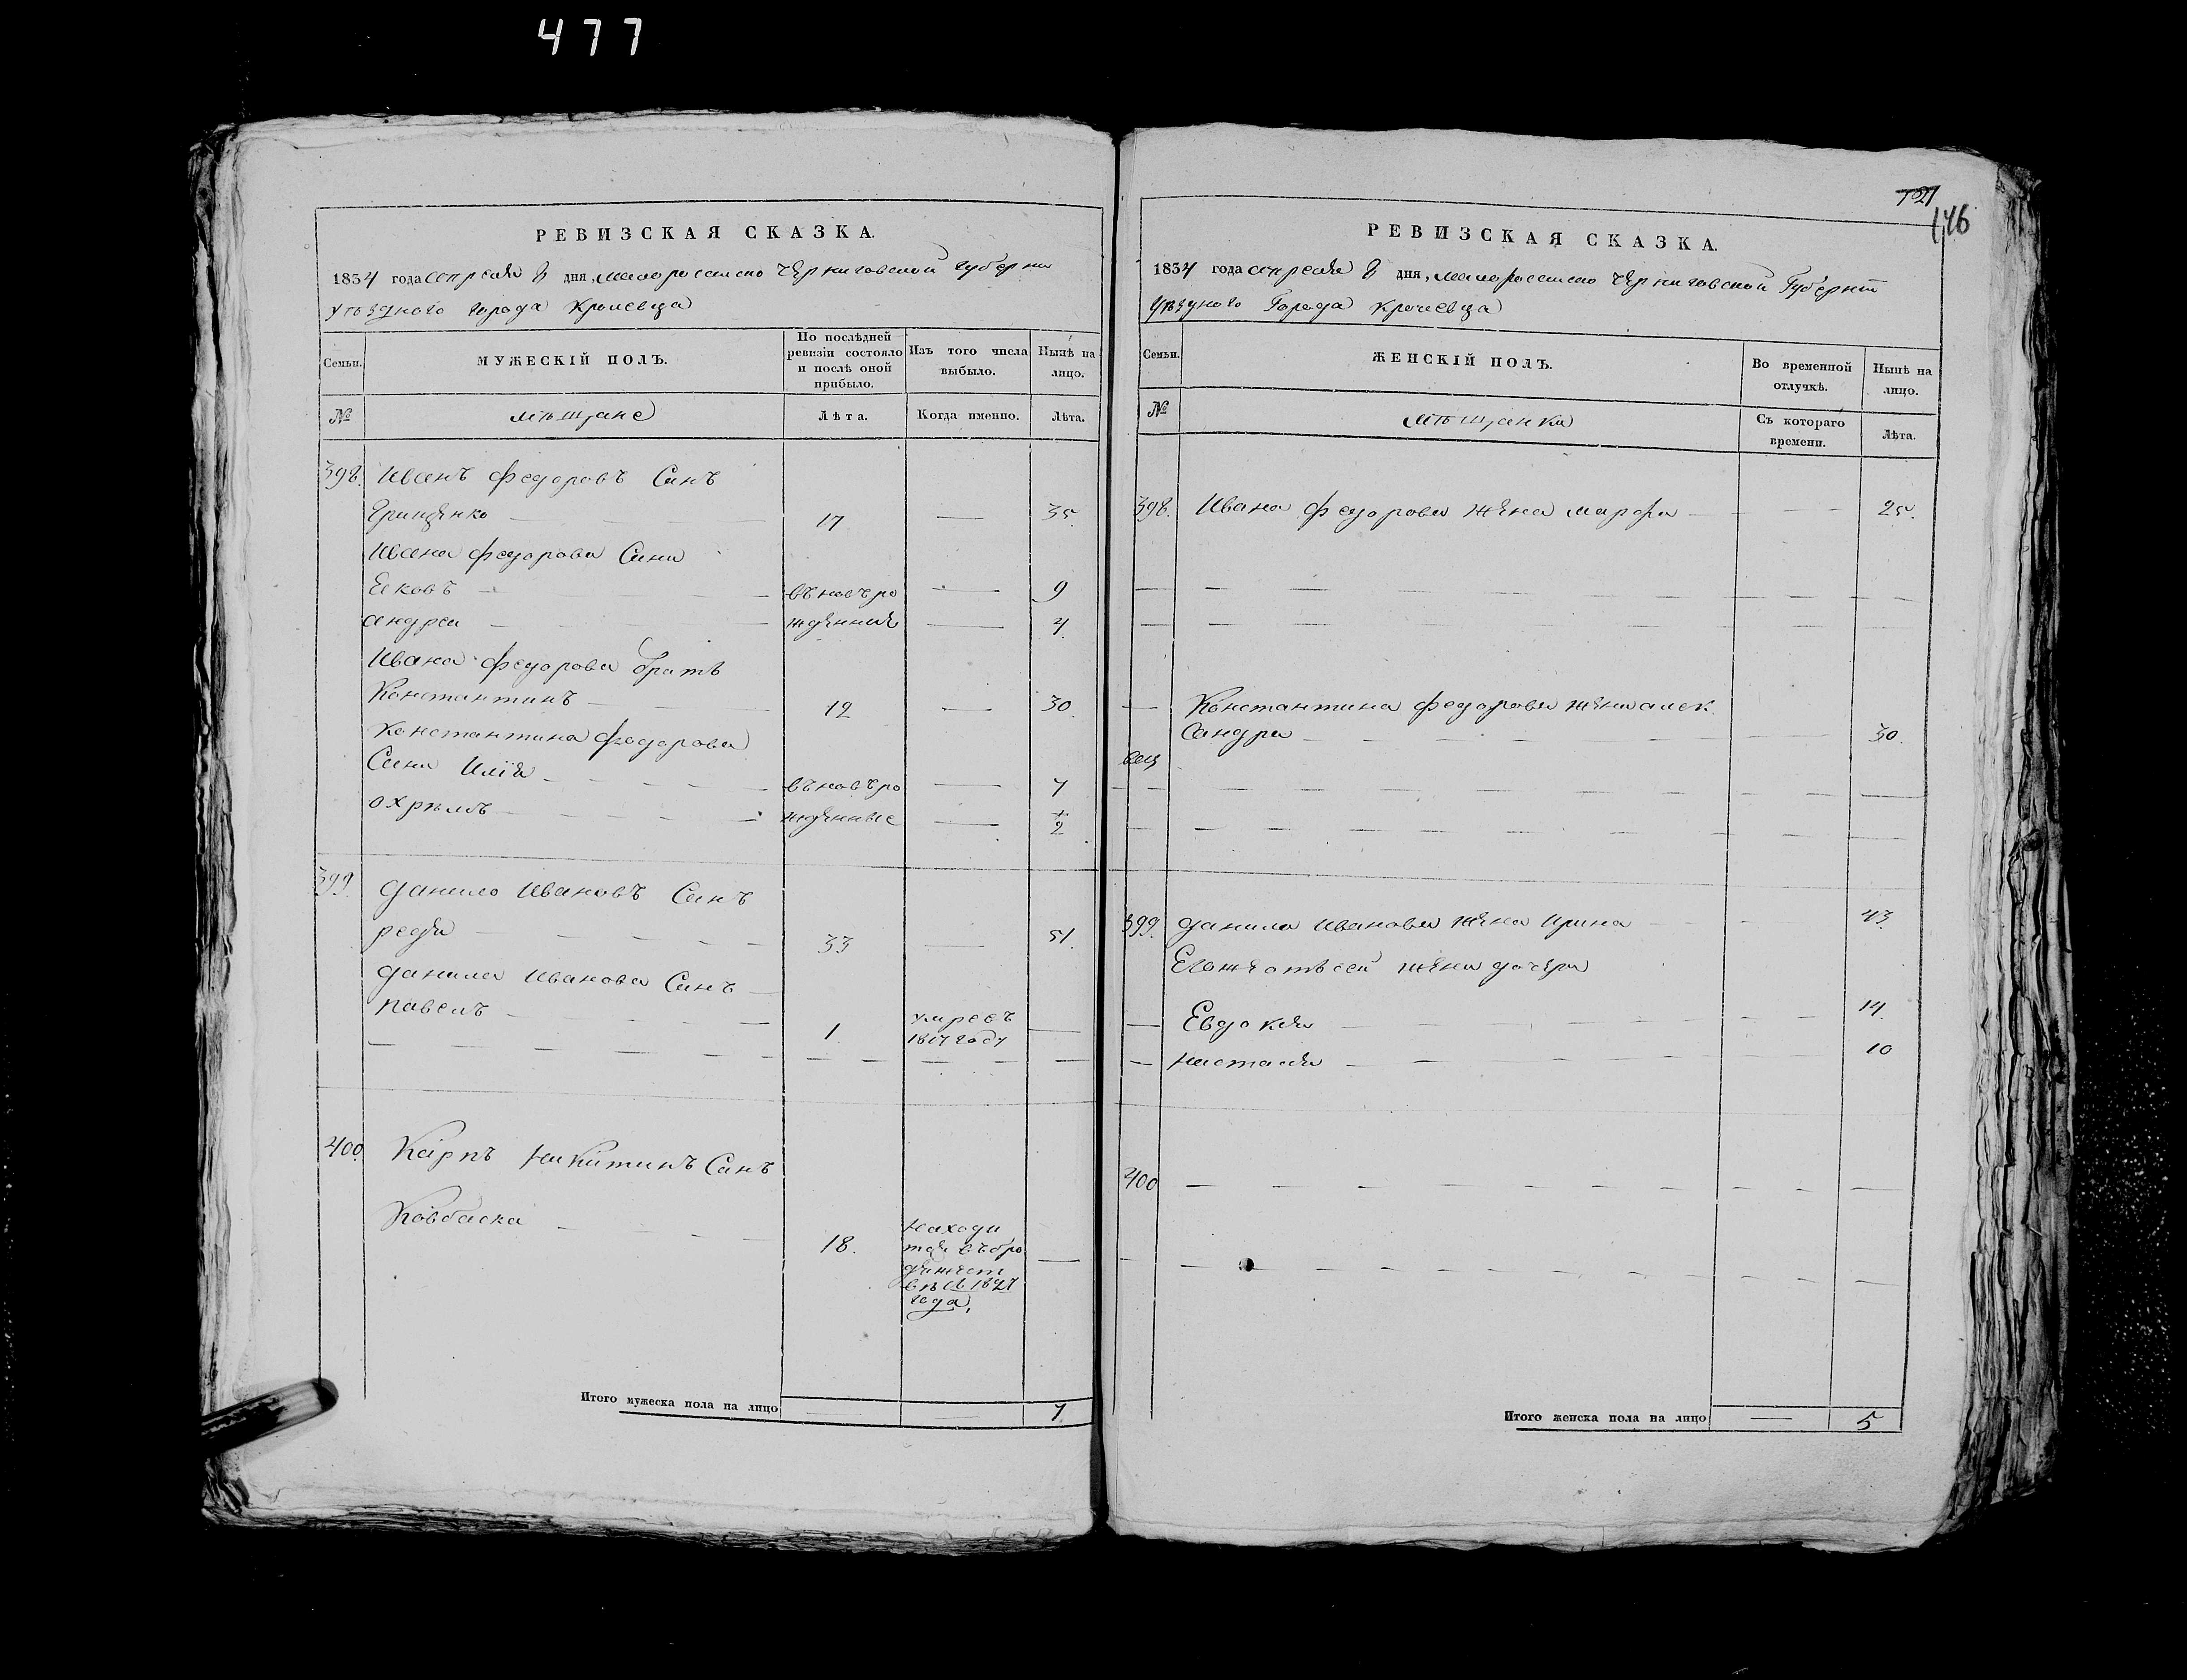 477
РЕВИЗСКАЯ СКАЗКА.
1834 года апреля 8 дня, малороссийско Черниговской губернии
уѣзднаго города Кролевца
Семьи.
МУЖЕСКІЙ ПОЛЪ.
По послѣдней ревизіи состояло и послѣ оной прибыло.
Изъ того числа выбыло.
Нынѣ на лицо.
№
мѣщане
Лѣта.
Когда именно.
Лѣта.
398. Иванъ Федоровъ Синъ
Грищенко 17 35.
Ивана Федорова Сини
Яковъ въновъро 9
андрей жденние 4
Ивана Федорова братъ
Константинъ 12 30
Константина Федорова
Сини Илія въновъро 7
охримъ жденные 1/2
399. Данило Ивановъ Синъ
редя 33 51.
Данила Иванова Синъ
павелъ 1 умреъ
1817 году
400. Карпъ Никитинъ Синъ
Ковбаска 18.
Находи
тся въбро
дяжест
вѣ съ 1827
года,
Итого мужеска пола на лицо 7
146
РЕВИЗСКАЯ СКАЗКА.
1834 года апреля 8 дня, малороссийско Черниговской Губерніи
уѣзднаго Города Кролевца
Семьи.
ЖЕНСКІЙ ПОЛЪ.
Во временной отлучкѣ.
Нынѣ на лицо.
№
мѣщанки
Съ котораго времени.
Лѣта.
398. Ивана Федорова жена марфа 25.
Константина Федорова жена алек
Сандра 30.
399. Данила Иванова жена Ирина 43
Егожеотъсей жени дочери
Евдокия 14.
Наталя 10
400
Итого женска пола на лицо 5